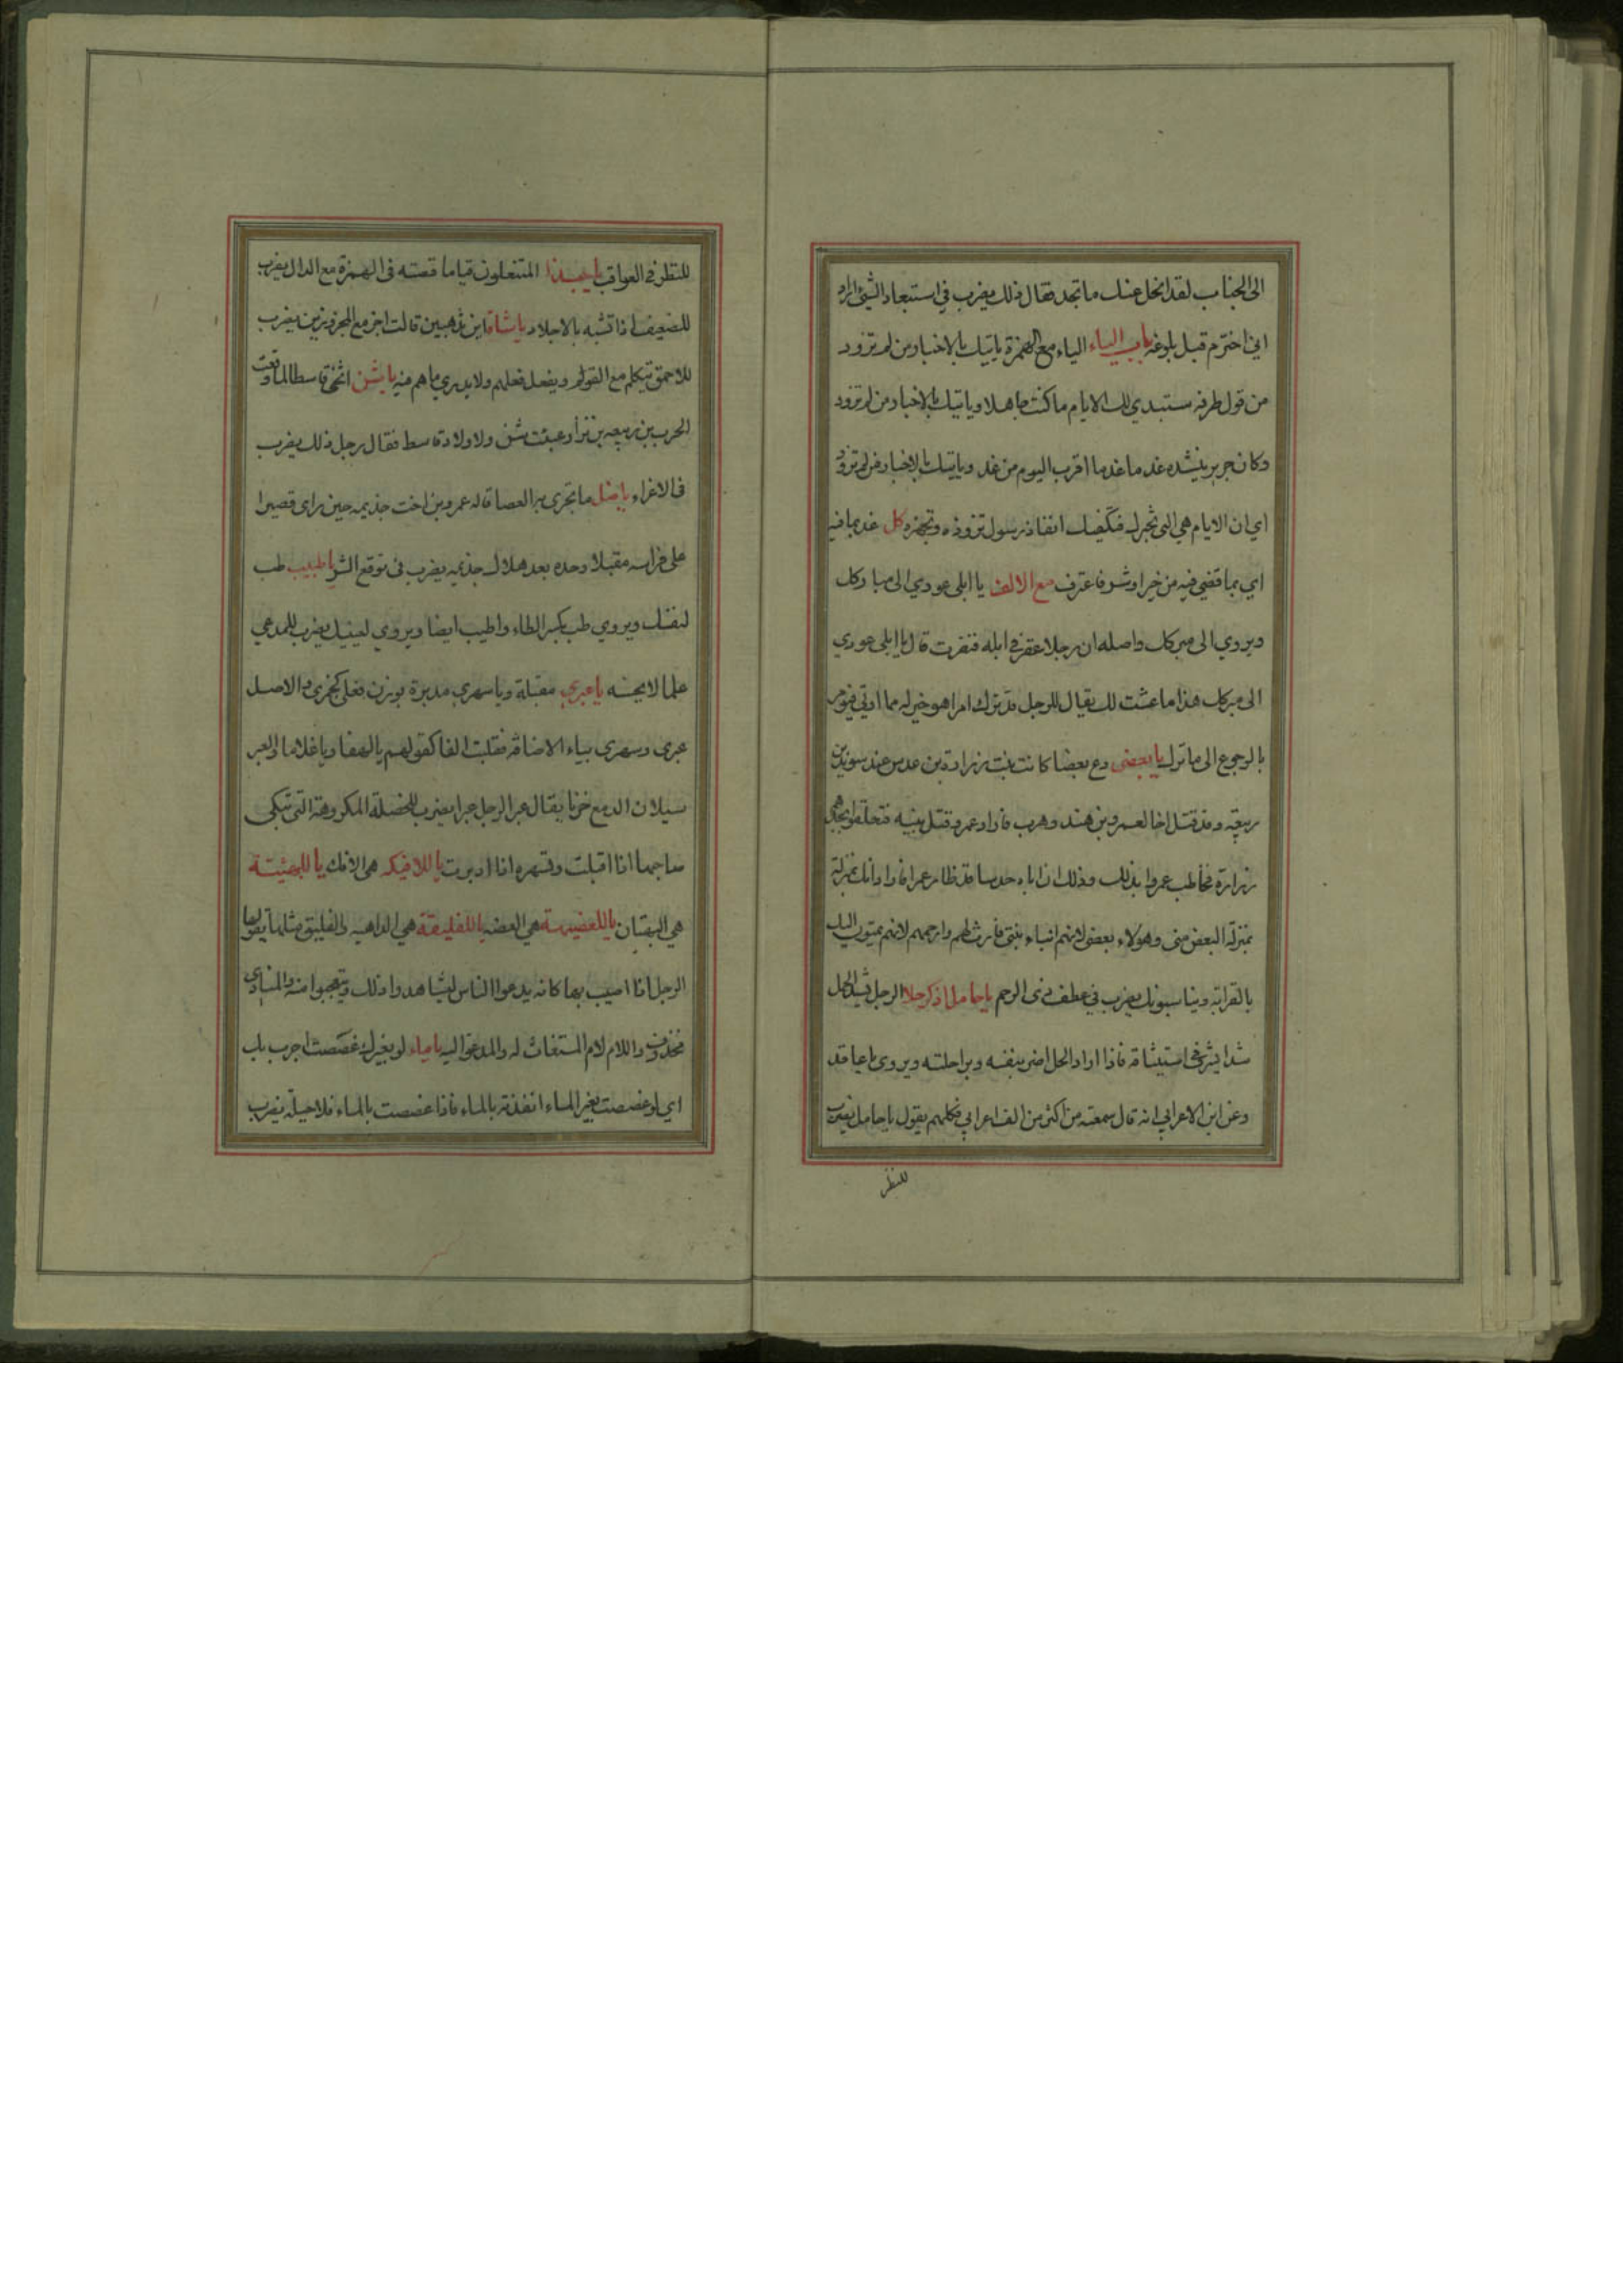 الى الجناب لقد انحل عنك ما تجد فقال ذلك يضرب في استبعاد الشئ اراد
اني اخترم قبل بلوغه باب الياء الياء مع الهمزة ياتيك بالاخبار من لم تزود
من قول طرفه ستبدي لك الايام ما كنت جاهلا وياتيك بالاخبار من لم تزود
وكان جرير ينشده غد ما غد ما اقرب اليوم من غد وياتيك بالاخبار من لم تزود
اي ان الايام هي التي تخبرك فتكفيك انفاذ رسول تزوده وتجهزه كل غد بما فيه
اي بما قضي فيه من خير او شر فاعترف مع الالف يا ابلى عودي الى مبارك
ويروي الى مبركك واصله ان رجلا عقر في ابله فنفرت قال يا ابلى عودي
الى مبركك هذا ما عشت لك يقال للرجل قد ترك امرا هو خير له مما اوتي فيؤمر
بالرجوع الى ما ترك يا بعضى دع بعضا كانت بنت زرارة بن عدس عند سويد بن
ربيعة وقد قتل اخا لعمرو بن هند وهرب فاراد عمرو قتل بنيه فتعلقوا بجدهم
زرارة فخاطب عمروا بذلك وذلك ان اباه عدسا قد ظار عمرا فاراد انك بمنزلة
بمنزلة البعض مني وهولاء بعضى لانهم ابناء بنتي فارث لهم وارحمهم لانهم يمتون اليك
بالقرابة ويناسبونك يضرب في عطف ذى الرحم يا حامل اذكر حلا الرجل يشد الحمل
شدا يشرف في استيثاقه فاذا اراد الحل اضر بنفسه وبراحلته ويروى يا عاقد
وعن ابن الاعرابي انه قال سمعته من اكثر من الف اعرابي فكلهم يقول يا حامل يضرب
للنظر
للنظر في العواقب يا حبذا المتنعلون قياما قصته فى الهمزة مع الدال يضرب
للضعيف اذا تشبه بالاجلاد يا شاة اين تذهبين قالت اجز مع المجزوزين يضرب
للاحمق يتكلم مع القوم ويفعل فعلهم ولا يدري ما هم فيه يا شن اثخني قاسطا لما وقعت
الحرب بين ربيعه بن نزار عبئت شن ولاولاد قاسط فقال رجل ذلك يضرب
فى الاغراء يا ضل ما تجرى به العصا قاله عمرو بن اخت جذيمه حين راى قصيرا
على فراسه مقبلا وحده بعد هلاك جذيمه يضرب فى توقع الشر يا طبيب طب
لنفسك ويروي طب بكسر الطاء واطيب ايضا ويروي لعينيك يضرب للمدعي
علما لا يحسنه يا عبري مقبلة ويا سهري مدبرة بوزن فعلى كجمزى والاصل
عبرى وسهرى بياء الاضافة فقلبت الفا كقولهم يا لهفا ويا غلاما والعبر
سيلان الدمع حزنا يقال عبر الرجل عبرا يضرب للخصلة المكروهة التي تبكي
صاحبها اذا اقبلت وتسهره اذا ادبرت يا للافيكه هى الافك يا للبهيتة
هي البهتان يا للعضيهة هي العضه يا للفليقة هي الداهيه والفليق مثلها يقولها
الرجل اذا اصيب بها كانه يدعوا الناس ليشاهدوا ذلك ويتعجبوا منه والمنادى
محذوف واللام لام المستغاث له والمدعو اليه يا ماء لو بغيرك غصصت اجرب باب
اي لو غصصت بغير الماء انفذته بالماء فاذا غصصت بالماء فلا حيلة يضرب